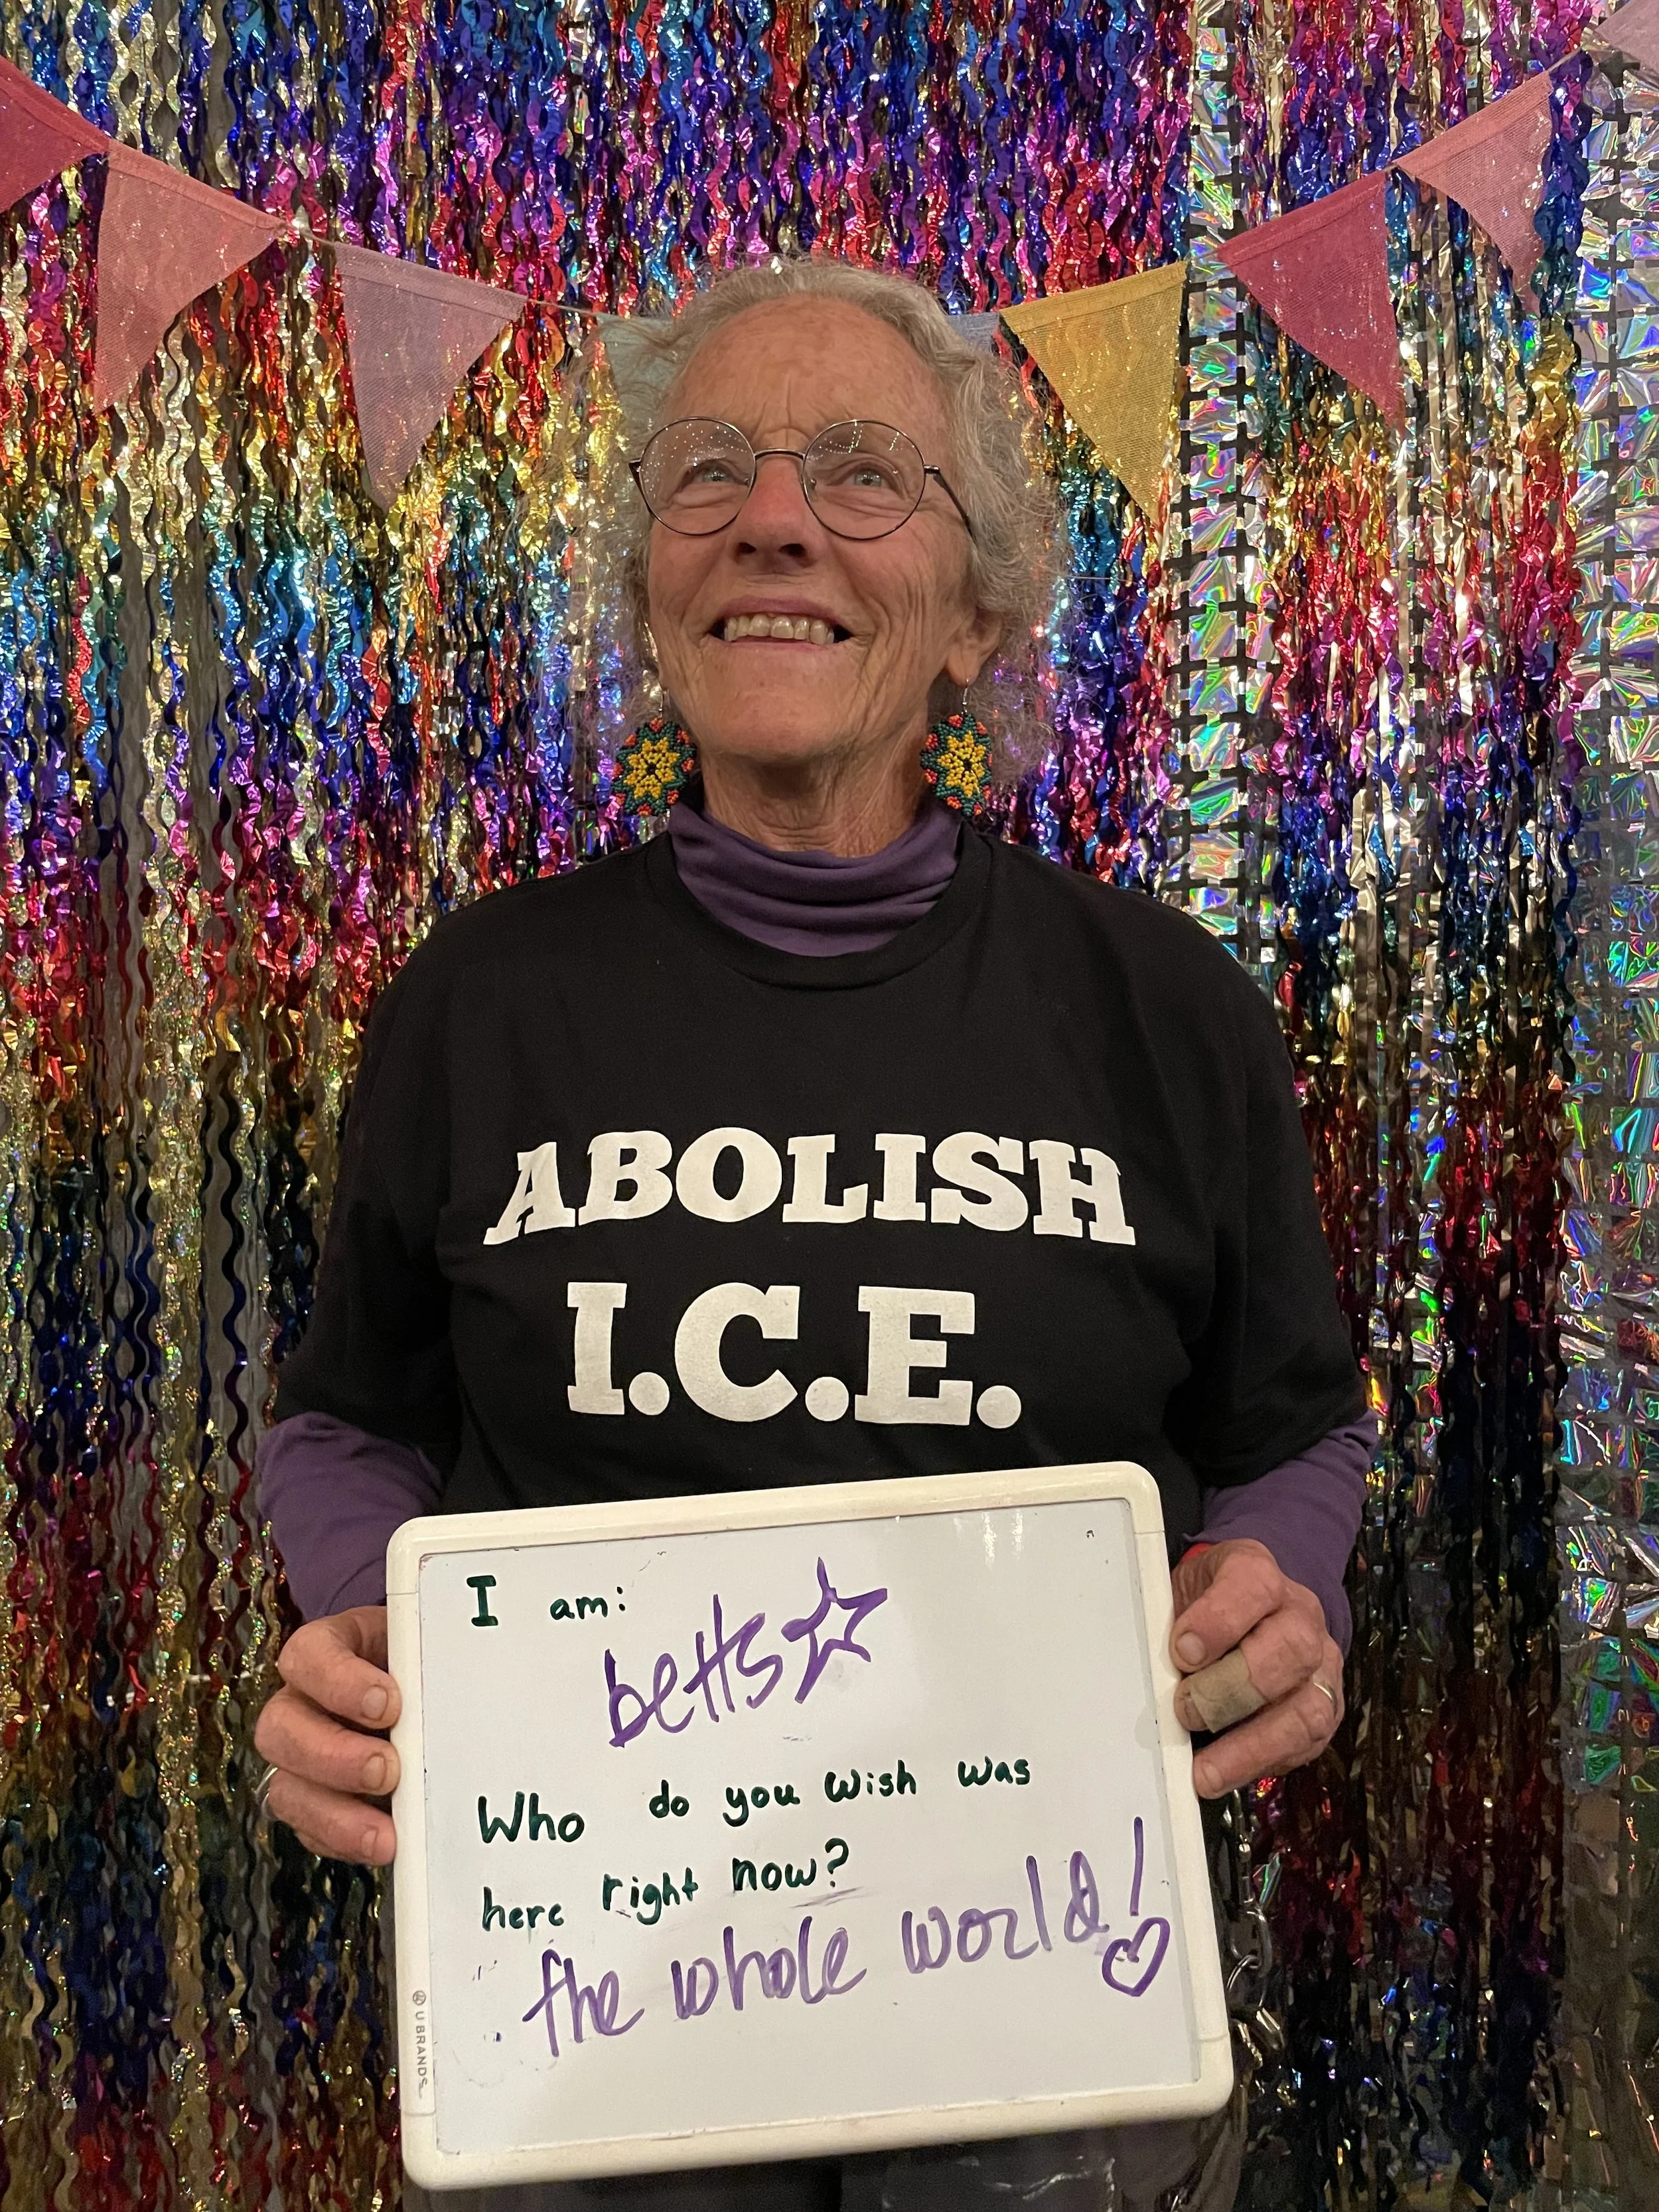 ABOLISH
I.C.E.
I am:
betts
Who do you wish was
here right now?
the whole world!
U BRANDS